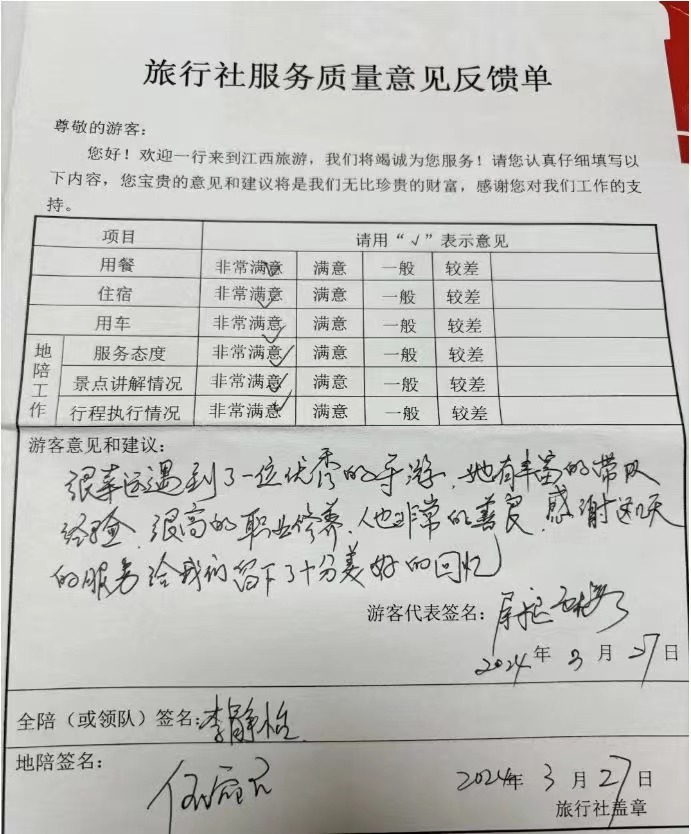 旅行社服务质量意见反馈单
尊敬的游客：
您好！欢迎一行来到江西旅游，我们将竭诚为您服务！请您认真仔细填写以
下内容，您宝贵的意见和建议将是我们无比珍贵的财富，感谢您对我们工作的支
持。
项目 请用“√”表示意见
用餐 非常满意 满意 一般 较差
住宿 非常满意 满意 一般 较差
用车 非常满意 满意 一般 较差
地陪工作
服务态度 非常满意 满意 一般 较差
景点讲解情况 非常满意 满意 一般 较差
行程执行情况 非常满意 满意 一般 较差
游客意见和建议：
很幸运遇到了一位优秀的导游，她有丰富的带队
经验，很高的职业修养，人也非常的善良，感谢这几天
的服务给我们留下了十分美好的回忆
游客代表签名：
2024年3月27日
全陪（或领队）签名：李静怡
地陪签名：
2024年3月27日
旅行社盖章